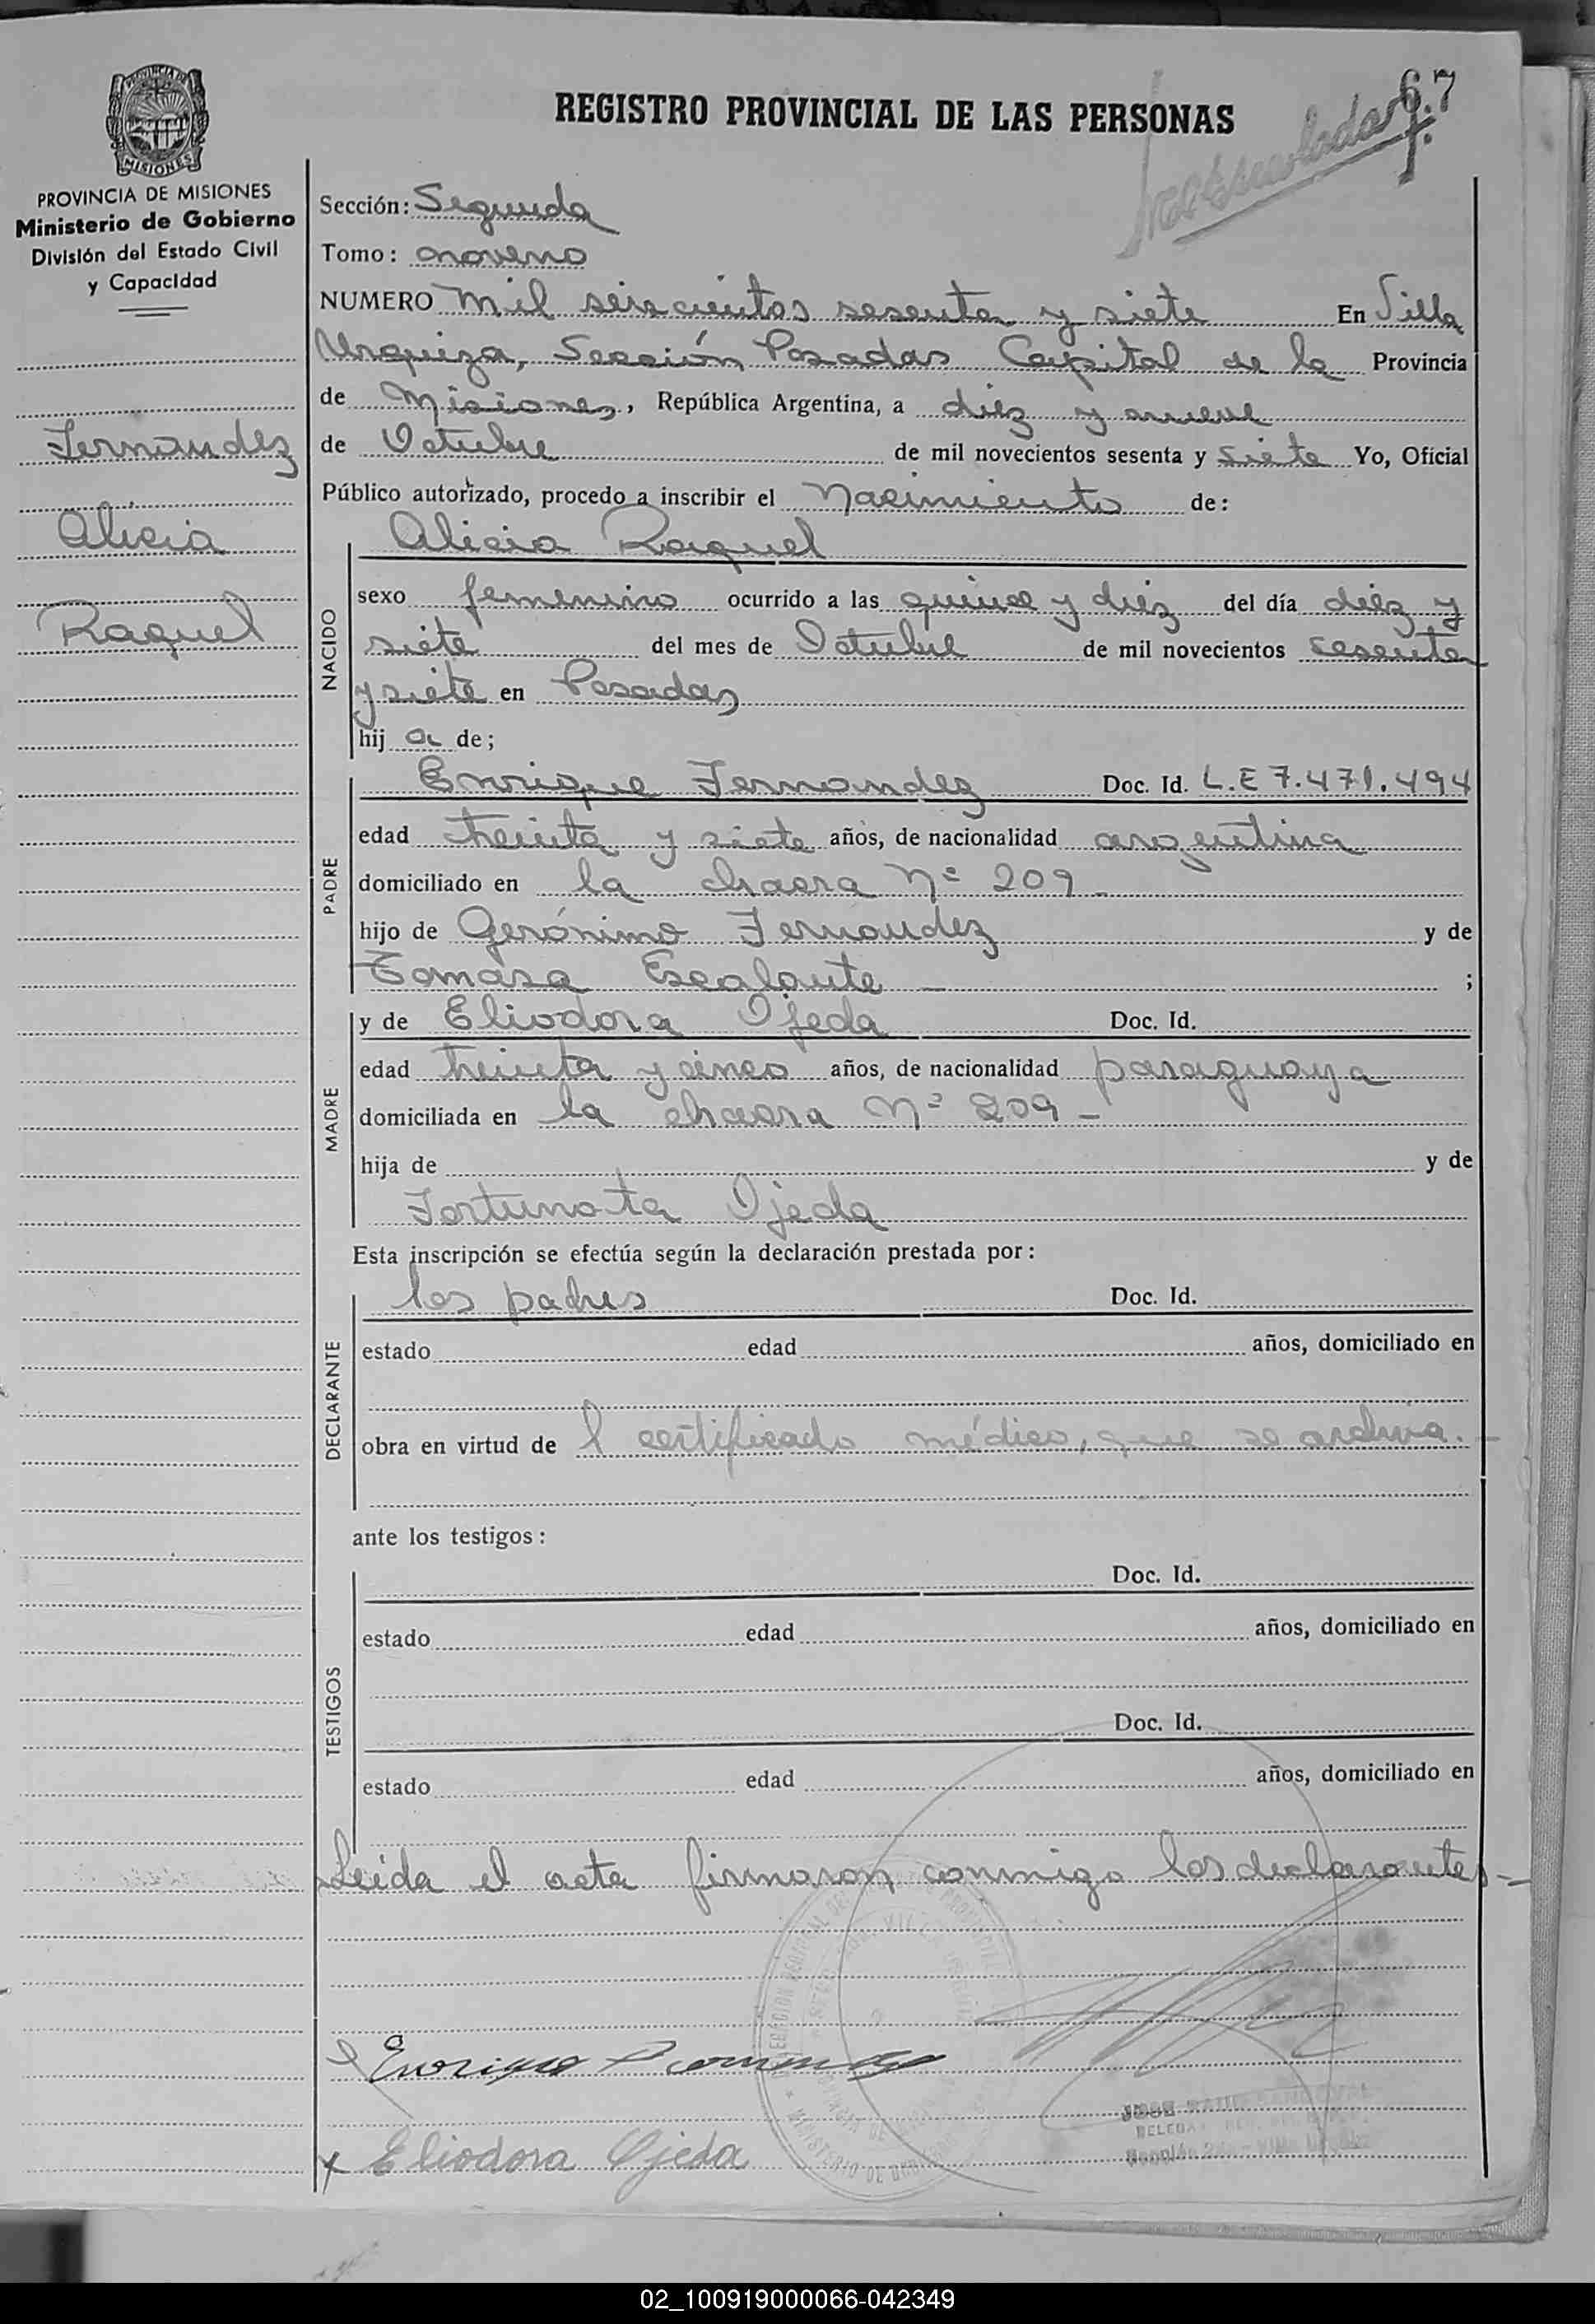 REGISTRO PROVINCIAL DE LAS PERSONAS
67
PROVINCIA DE
MISIONES
PROVINCIA DE MISIONES
Ministerio de Gobierno
División del Estado Civil
y Capacidad
Fernandez
Alicia
Raquel
Sección: Segunda
Tomo: noveno
NUMERO mil seiscientos sesenta y siete En Villa
Urquiza, Sección Posadas Capital de la Provincia
de Misiones, República Argentina, a diez y nueve
de Octubre de mil novecientos sesenta y siete Yo, Oficial
Público autorizado, procedo a inscribir el Nacimiento de:
NACIDO
Alicia Raquel
sexo femenino ocurrido a las quince y diez del día diez y
siete del mes de Octubre de mil novecientos sesenta
y siete en Posadas
hij a de;
PADRE
Enrique Fernandez Doc. Id. L.E 7.471.494
edad treinta y siete años, de nacionalidad argentina
domiciliado en la chacra Nº 209-
hijo de Gerónimo Fernandez y de
Tomasa Escalante - ;
MADRE
y de Eliodora Ojeda Doc. Id.
edad treinta y cinco años, de nacionalidad paraguaya
domiciliada en la chacra Nº 209-
hija de y de
Fortunata Ojeda
Esta inscripción se efectúa según la declaración prestada por:
DECLARANTE
los padres Doc. Id.
estado edad años, domiciliado en
obra en virtud de l certificado médico, que se archiva.-
ante los testigos:
TESTIGOS
Doc. Id.
estado edad años, domiciliado en
Doc. Id.
estado edad años, domiciliado en
Leída el acta firmaron conmigo los declarantes-
Enrique
Eliodora Ojeda
02_100919000066-042349